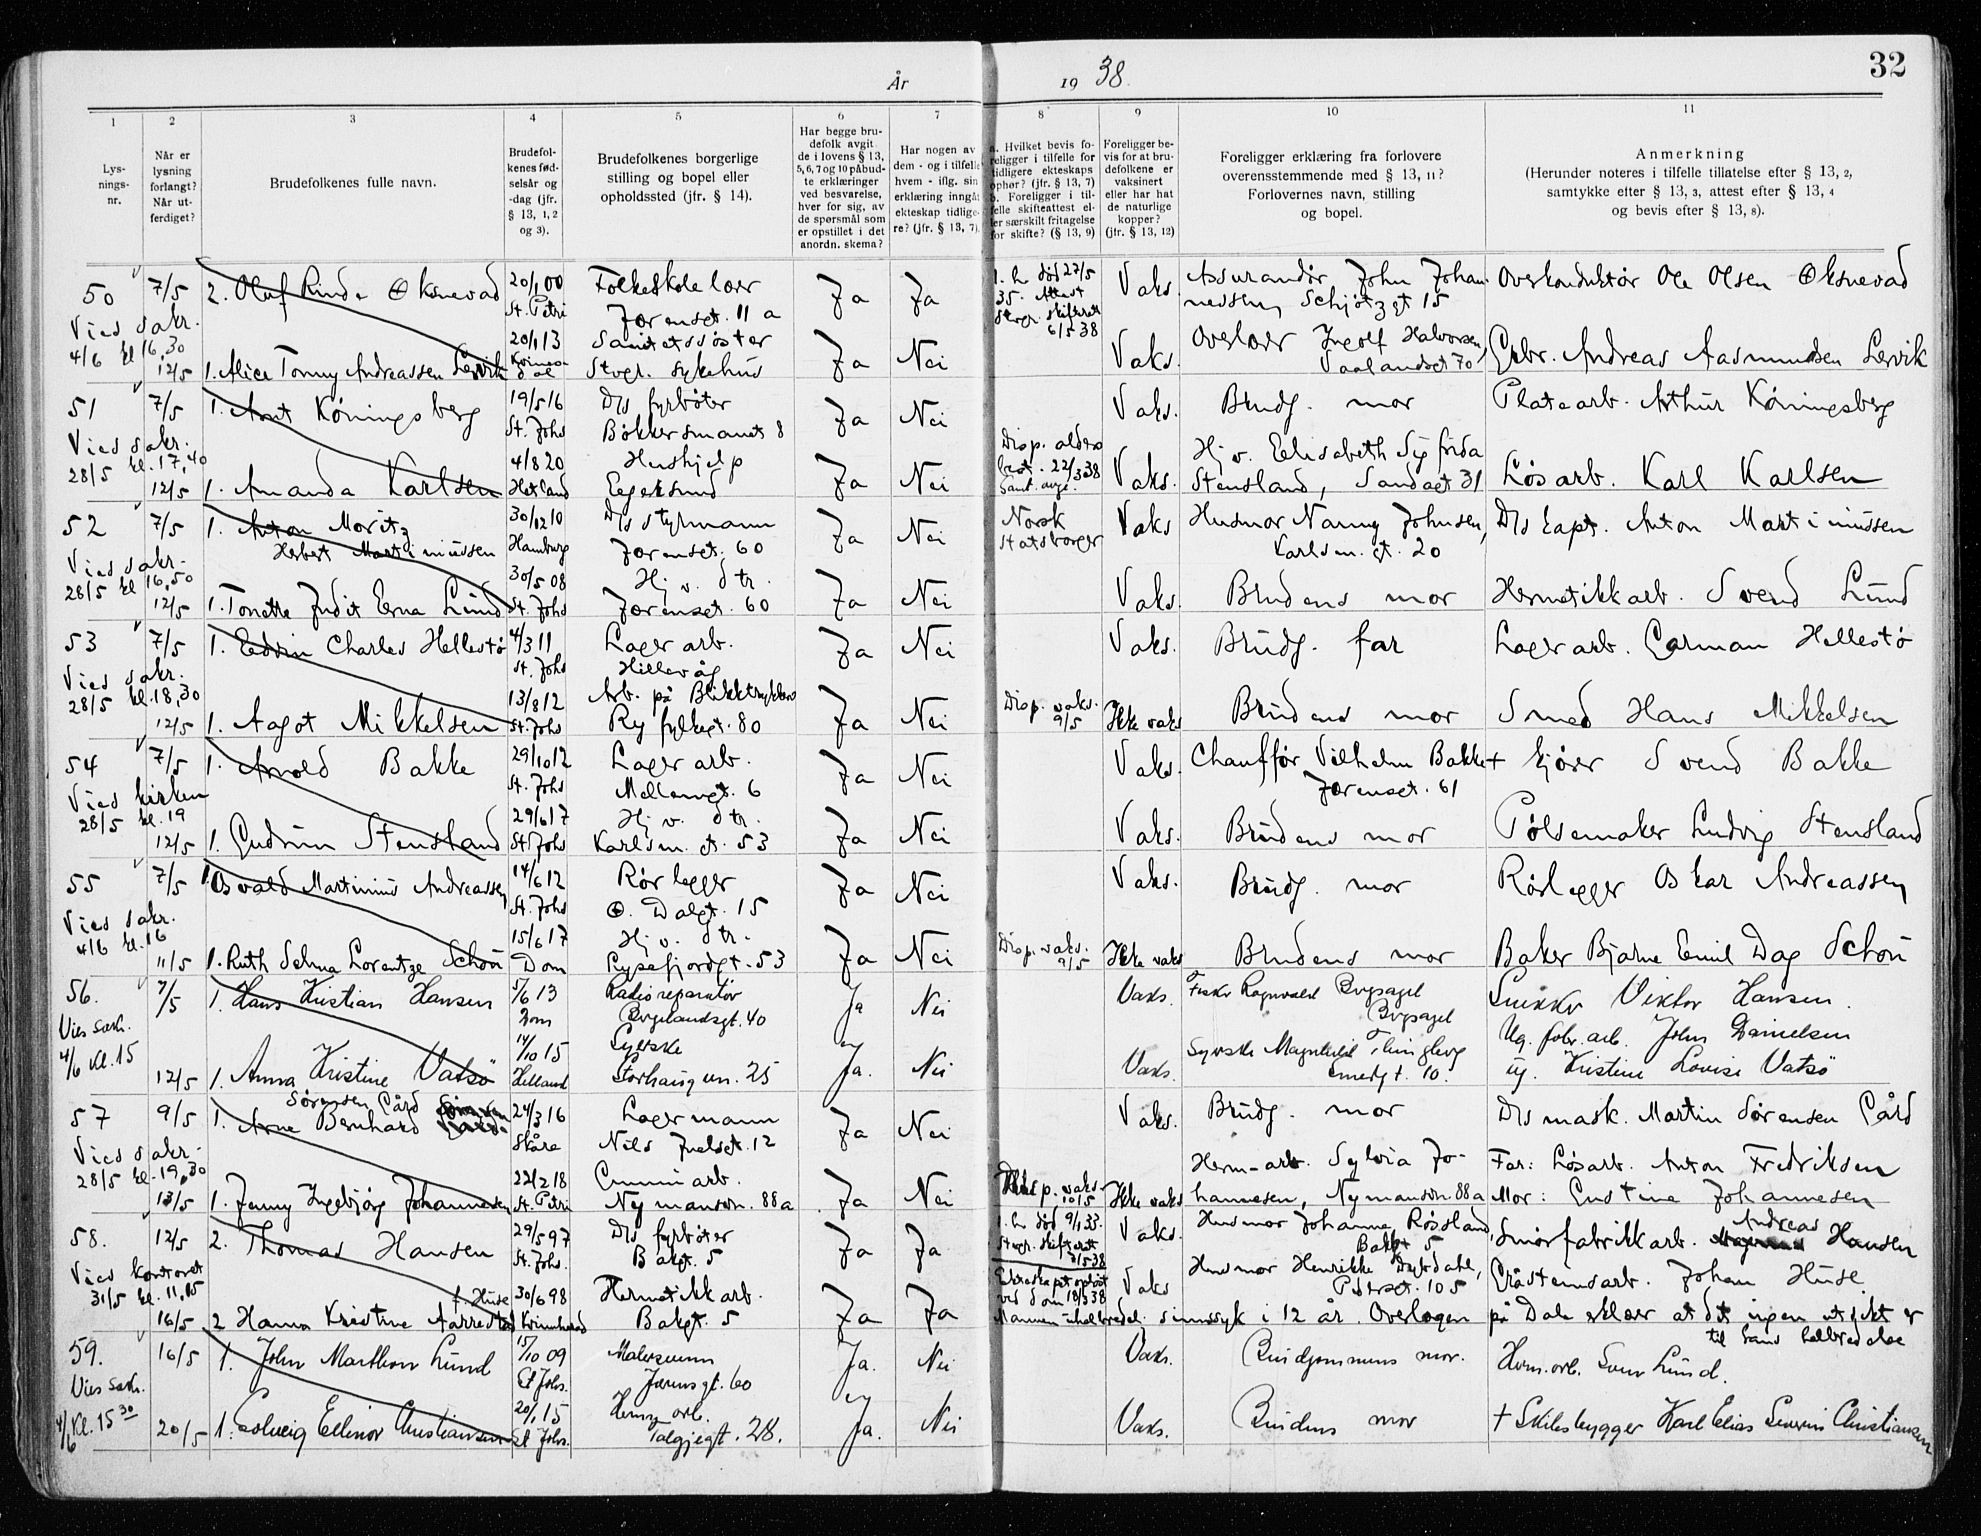 År 19 38. 32
1 2 3 4 5 6 7 8 9 10 11
Lys-
nings-
nr.
Når er
lysning
forlangt?
Når ut-
ferdiget?
Brudefolkenes fulle navn.
Brudefol-
kenes fød-
selsår og
-dag (jfr.
§ 13, 1, 2
og 3).
Brudefolkenes borgerlige
stilling og bopel eller
opholdssted (jfr. § 14).
Har begge bru-
defolk avgit
de i lovens § 13,
5, 6, 7 og 10 påbud-
te erklæringer
ved besvarelse,
hver for sig, av
de spørsmål som
er opstillet i det
anordn. skema?
Har nogen av
dem - og i tilfelle
hvem - iflg. sin
erklæring inngåt
ekteskap tidlige-
re? (jfr. § 13, 7).
a. Hvilket bevis fo-
religger i tilfelle for
tidligere ekteskaps
ophør? (jfr. § 13, 7)
b. Foreligger i til-
felle skifteattest el-
ler særskilt fritagelse
for skifte? (§ 13, 9)
Foreligger be-
vis for at bru-
defolkene er
vaksinert
eller har hat
de naturlige
kopper?
(jfr. § 13, 12)
Foreligger erklæring fra forlovere
overensstemmende med § 13, 11?
Forlovernes navn, stilling
og bopel.
Anmerkning
(Herunder noteres i tilfelle tillatelse efter § 13, 2,
samtykke efter § 13, 3, attest efter § 13, 4
og bevis efter § 13, 8).
50 7/5 2. Olaf Rinde Øksnevad 20/1 00 St. Petri Folkeskolelær Jærenset. 11 a Ja Ja 1. h. død 27/5 35. Attest Stvgr. skifterett 6/5 38 Vaks. Assurandør John Johannessen, Schjøtzgt 15 Overkonduktør Ole Olsen Øksnevad
Vies sakr. 4/6 kl 16,30 12/5 1. Alice Tonny Andreassen Lervik 20/1 13 Sanitetssøster Stvgr. sykehus Ja Nei Vaks. Overlærer Ingolf Halvorsen, Vaalandsgt 70 Grbr. Andreas Aasmundsen Lervik
51 7/5 1. Arnt Køningsberg 19/5 16 St. Johs D/s fyrbøter Bøkkersmauet 8 Ja Nei Vaks. Brudg. mor Platearb. Arthur Køningsberg
Vies sakr. 28/5 kl. 17,40 12/5 1. Amanda Karlsen 4/8 20 Hetland Hushjelp Egersund Ja Nei Disp. alders 22/3 38 Vaks. Hj. v. Elisabeth Sigfrida Stensland, Sandgt 31 Løsarb. Karl Karlsen
52 7/5 1. Anton Moritz Herbert Martiniussen 30/12 10 Hamburg D/s styrmann Jærenset. 60 Ja Nei Norsk statsborger Vaks Husmor Nanny Johnsen, Karlsm. gt. 20 D/s kapt. Anton Martiniussen
Vies sakr. 28/5 kl 16,50 12/5 1. Tonette Judit Erna Lund 30/5 08 St. Johs Hj. v. dtr. Jærenset. 60 Ja Nei Vaks. Brudens mor Hermetikkarb. Svend Lund
53 7/5 1. Edvin Charles Hellestø 4/3 11 St. Johs Lagerarb. Hillevåg Ja Nei Vaks. Brudg. far Lagerarb. Carman Hellestø
Vies sakr. 28/5 kl. 18,30 12/5 1. Aagot Mikkelsen 13/8 12 St. Johs Arb. på Blikktrykkeri Ryfylkegt. 80 Ja Nei Disp. vaks. 9/5 Ikke vaks Brudens mor Smed Hans Mikkelsen
54 7/5 1. Arnold Bakke 29/10 12 St. Johs Lagerarb. Mellemgt. 6 Ja Nei Vaks. Chauffør Vilhelm Bakke Jærenset. 61 + kjører Svend Bakke
Vies kirken 28/5 kl. 19 12/5 1. Gudrun Stensland 29/6 17 St Johs Hj. v. dtr. Karlsm. gt. 53 Ja Nei Vaks. Brudens mor Pølsemaker Ludvig Stensland
55 7/5 1. Osvald Martinius Andreassen 14/6 12 St. Johs Rørlegger Ø. Dalgt. 15 Ja Nei Vaks. Brudg. mor Rørlegger Oskar Andreassen
Vies sakr. 4/6 kl. 16 11/5 1. Ruth Selma Lorentze Schøn 15/6 17 Dom Hj. v. dtr. Lysefjordgt. 53 Ja Nei Disp. vaks. 9/5 Ikke vaks Brudens mor Baker Bjarne Emil Dag Schøn
56. 7/5 1. Hans Kristian Hansen 5/6 13 Dom Radioreparatør Bergelandsgt. 40 Ja Nei Vaks. Fisker Ragnvald Bergsagel Bergsagel Snikker Viktor Hansen.
Vies sakr. 4/6 kl. 15 12/5 1. Anna Kristine Vatsø 14/10 15 Hetland Syerske Storhaugvn. 25 Ja. Nei Vaks. Syerske Magnhild Thingberg Smedgt. 10. Ug. fabr. arb. John Danielsen ug. Kristine Lovise Vatsø
57 9/5 1. Arne Bernhard Sørensen Gård 24/3 16 Skåre Lagermann Nils Juelsgt. 12 Ja Nei Vaks. Brudg. mor D/s mask. Martin Sørensen Gård
Vies sakr. 28/5 kl. 19,30 13/5 1. Jenny Ingebjørg Johannesen 22/2 18 St. Petri Gummiarb. Nymansv. 88 a Ja Nei Disp. vaks. 10/5 Ikke vaks Herm-arb. Sylvia Johannesen, Nymansvn. 88 a Far: Løsarb. Anton Fredriksen Mor: Gustine Johannesen
58. 12/5 2. Thomas Hansen 29/5 97 St. Johs. D/s fyrbøter Bakgt. 5 Ja Ja 1. h. død 9/1 33. Stvgr. skifterett 7/5 38 Vaks. Husmor Johanne Røssland, Bakgt 5 Smørfabrikkarb. Andreas Hansen
Vies kontoret 31/5 kl. 11,15 16/5 2 Hanna Kristine Aarrestad f. Huse 30/6 98 Kvinnherad Hermetikkarb. Bakgt. 5 Ja Ja Ekteskapet opløst ved dom 18/3 38 Vaks Husmor Henrikke Dysdahl, Pedersgt. 105 Gråstensarb. Johan Huse
Mannen uhelbredel. sinnssyk i 12 år. Overlægen på Dale erklærer at det ingen utsikt er til hans helbredelse
59. 16/5 1. John Marthon Lund 15/10 09 St Johs. Malersvenn Jærensgt. 60 Ja. Nei Vaks. Brudgommens mor. Herm. arb. Sven Lund.
Vies sakr. 4/6 kl. 15 30 20/5 1. Solveig Ellinor Christiansen 20/1 15 St Johs. Herm. arb. Talgjegt. 28. Ja. Nei Vaks. Brudens mor + Skibsbygger Karl Elias Severin Christiansen